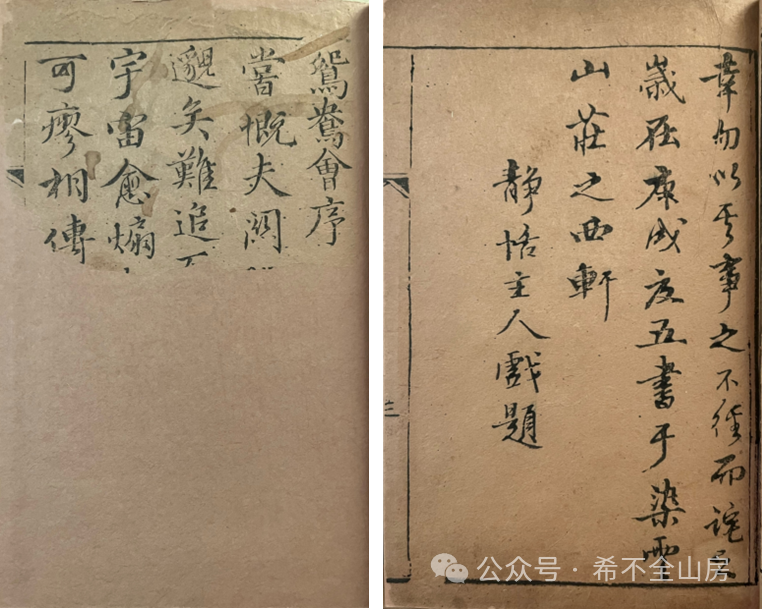 鴛鴦會序
嘗慨夫関
邈矣難追
宇宙愈煽
可廖相傳
幸勿以其事之不經而詫
歲在庚戌夏五書于染雲
山莊之西軒
靜恬主人戲題
三
公众号·希不全山房